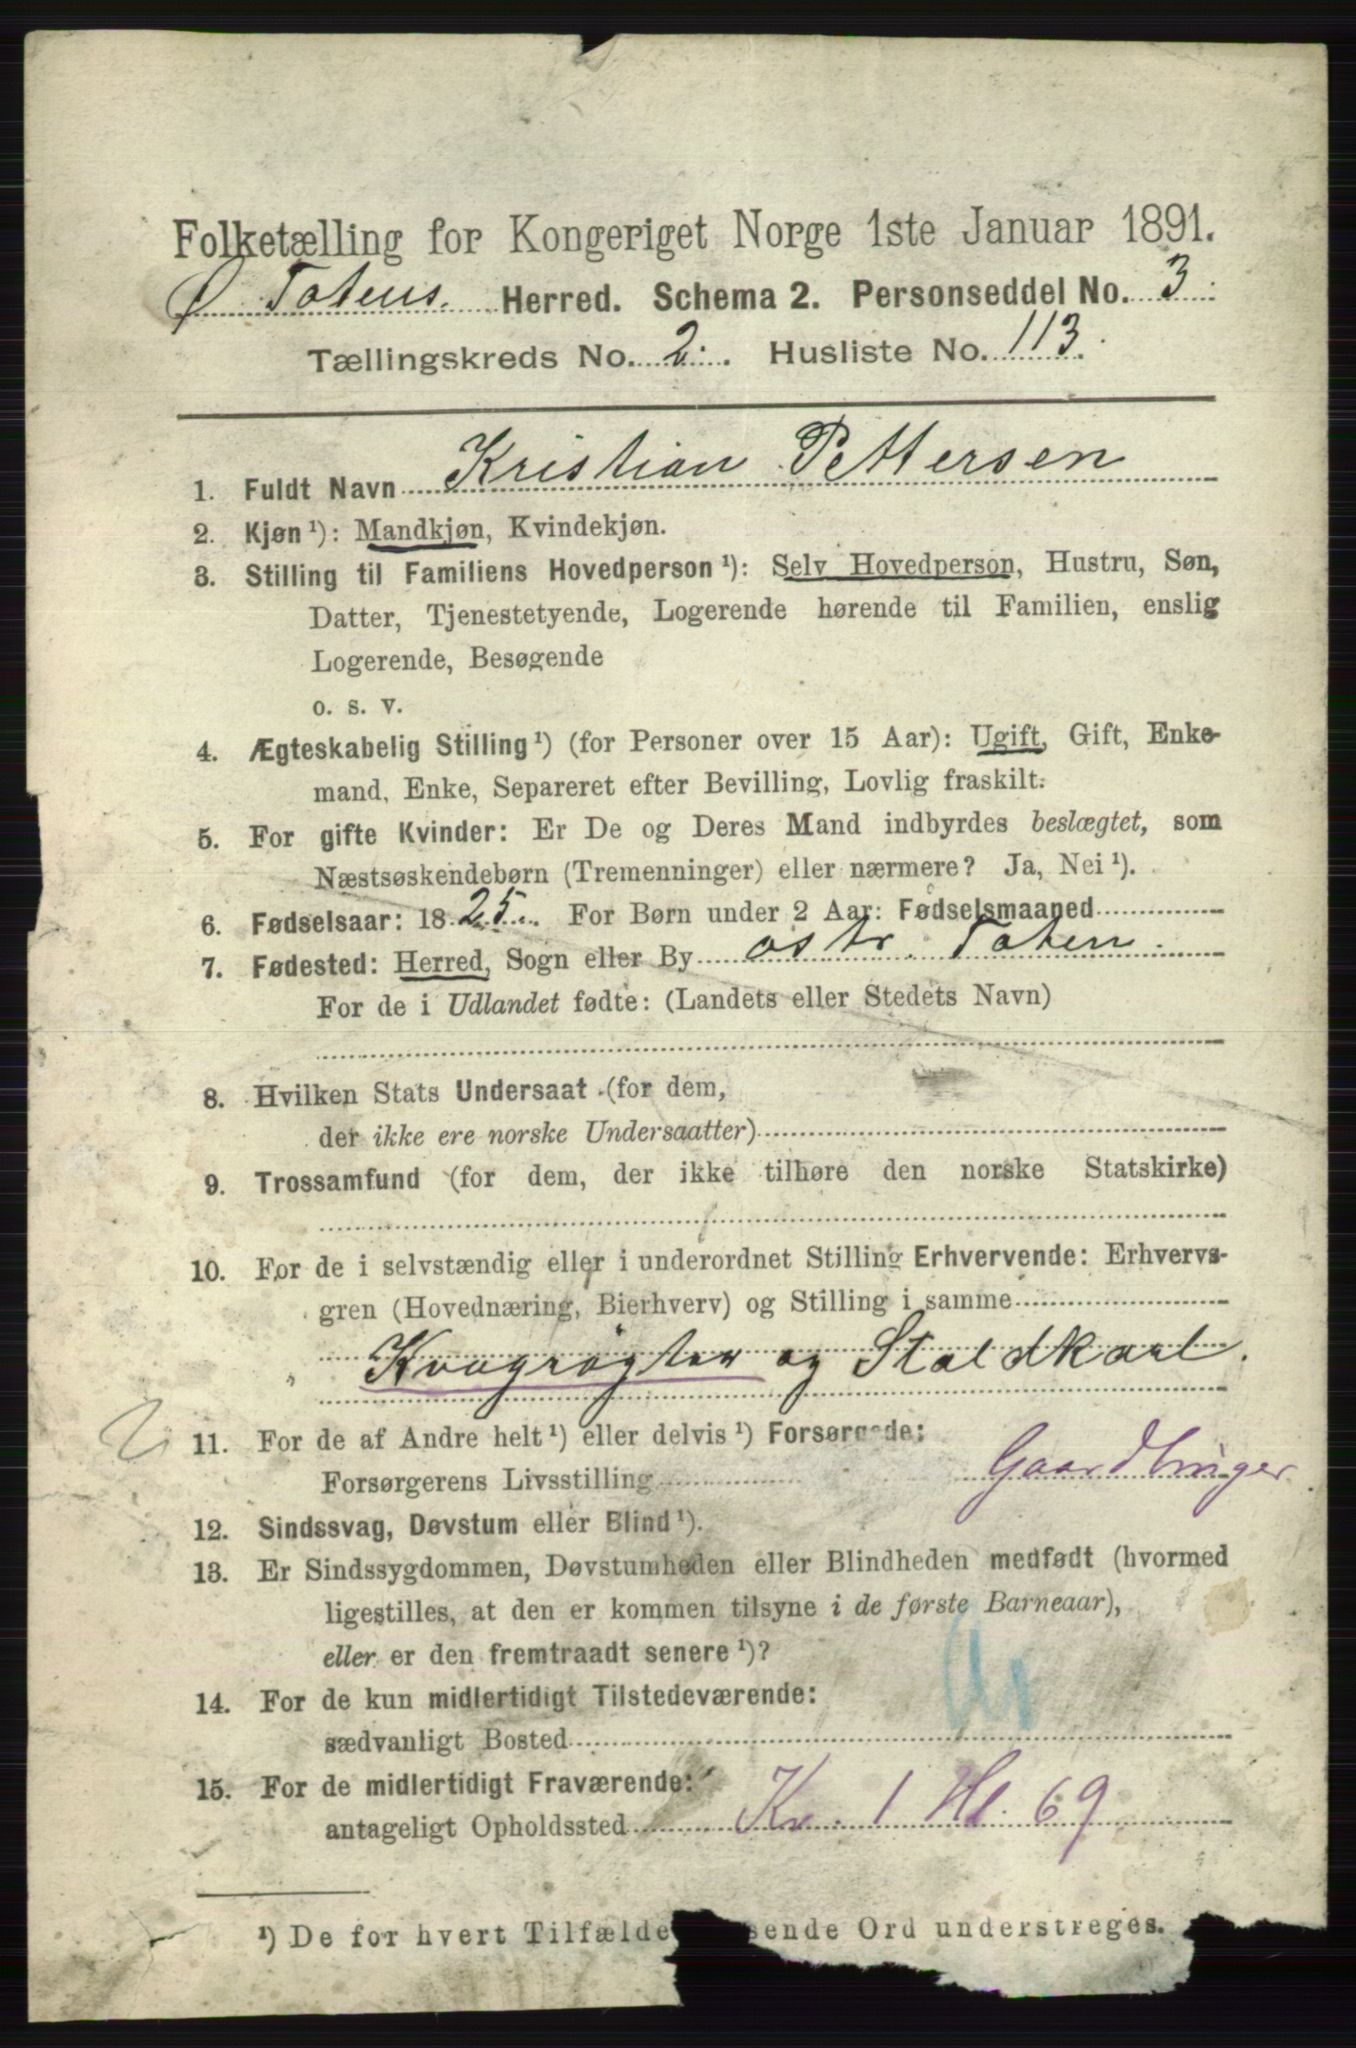 Folketælling for Kongeriget Norge 1ste Januar 1891.
Ø Totens. Herred. Schema 2. Personseddel No. 3.
Tællingskreds No. 2. Husliste No. 113.
1. Fuldt Navn Kristian Pettersen
2. Kjøn ¹): Mandkjøn, Kvindekjøn.
3. Stilling til Familiens Hovedperson ¹): Selv Hovedperson, Hustru, Søn,
Datter, Tjenestetyende, Logerende hørende til Familien, enslig
Logerende, Besøgende
o. s. v.
4. Ægteskabelig Stilling ¹) (for Personer over 15 Aar): Ugift, Gift, Enke-
mand, Enke, Separeret efter Bevilling, Lovlig fraskilt.
5. For gifte Kvinder: Er De og Deres Mand indbyrdes beslægtet, som
Næstsøskendebørn (Tremenninger) eller nærmere? Ja, Nei ¹).
6. Fødselsaar: 1825. For Børn under 2 Aar: Fødselsmaaned
7. Fødested: Herred, Sogn eller By østr. Toten.
For de i Udlandet fødte: (Landets eller Stedets Navn)
8. Hvilken Stats Undersaat (for dem,
der ikke ere norske Undersaatter)
9. Trossamfund (for dem, der ikke tilhøre den norske Statskirke)
10. For de i selvstændig eller i underordnet Stilling Erhvervende: Erhvervs-
gren (Hovednæring, Bierhverv) og Stilling i samme
Kvægrøgter og Staldkarl.
11. For de af Andre helt ¹) eller delvis ¹) Forsørgede:
Forsørgerens Livsstilling Gaardbruger
12. Sindssvag, Døvstum eller Blind ¹).
13. Er Sindssygdommen, Døvstumheden eller Blindheden medfødt (hvormed
ligestilles, at den er kommen tilsyne i de første Barneaar),
eller er den fremtraadt senere ¹)?
14. For de kun midlertidigt Tilstedeværende:
sædvanligt Bosted
15. For de midlertidigt Fraværende:
antageligt Opholdssted Kr. 1 Hl. 69
¹) De for hvert Tilfælde sende Ord understreges.